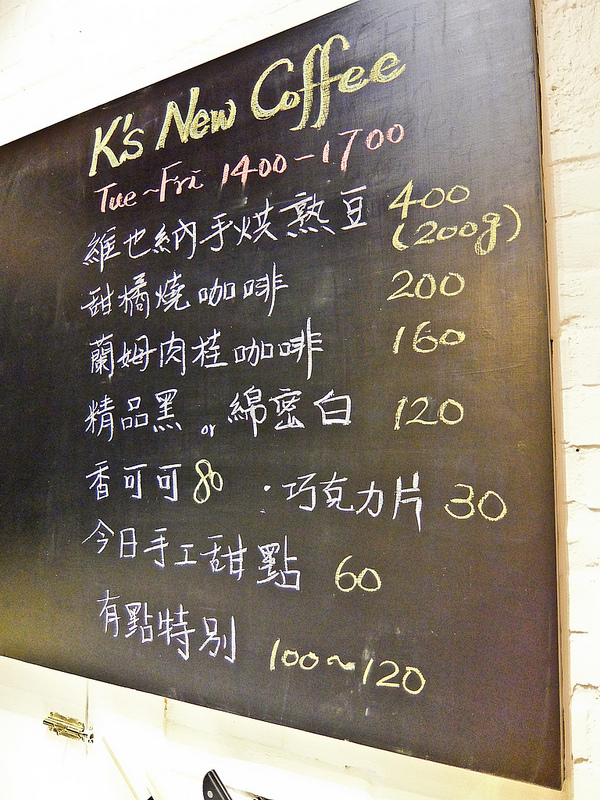 K's New Coffee
Tue~Fri 1400-1700
維也納手烘熟豆 400
(200g)
甜橘燒咖啡 200
蘭姆肉桂咖啡 160
精品黑 or 綿密白 120
香可可 80 ·巧克力片 30
今日手工甜點 60
有點特別 100~120